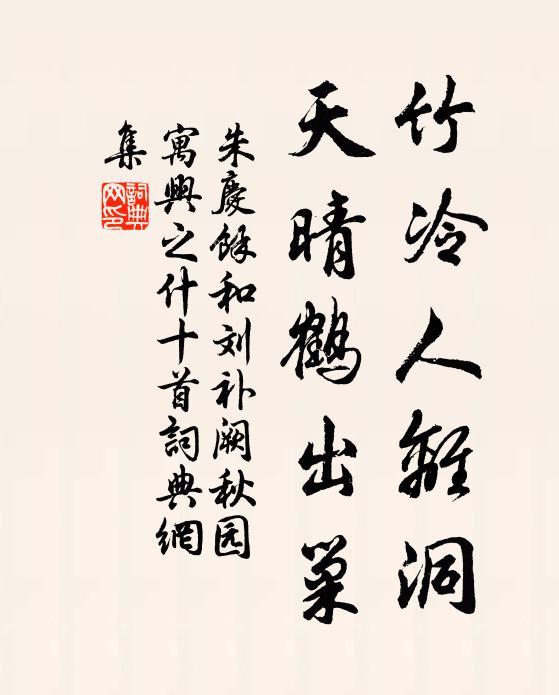 竹冷人離洞
天晴鶴出巢
朱慶餘和刘补阙秋园
寓興之什十首詞典網
集
詞典网印